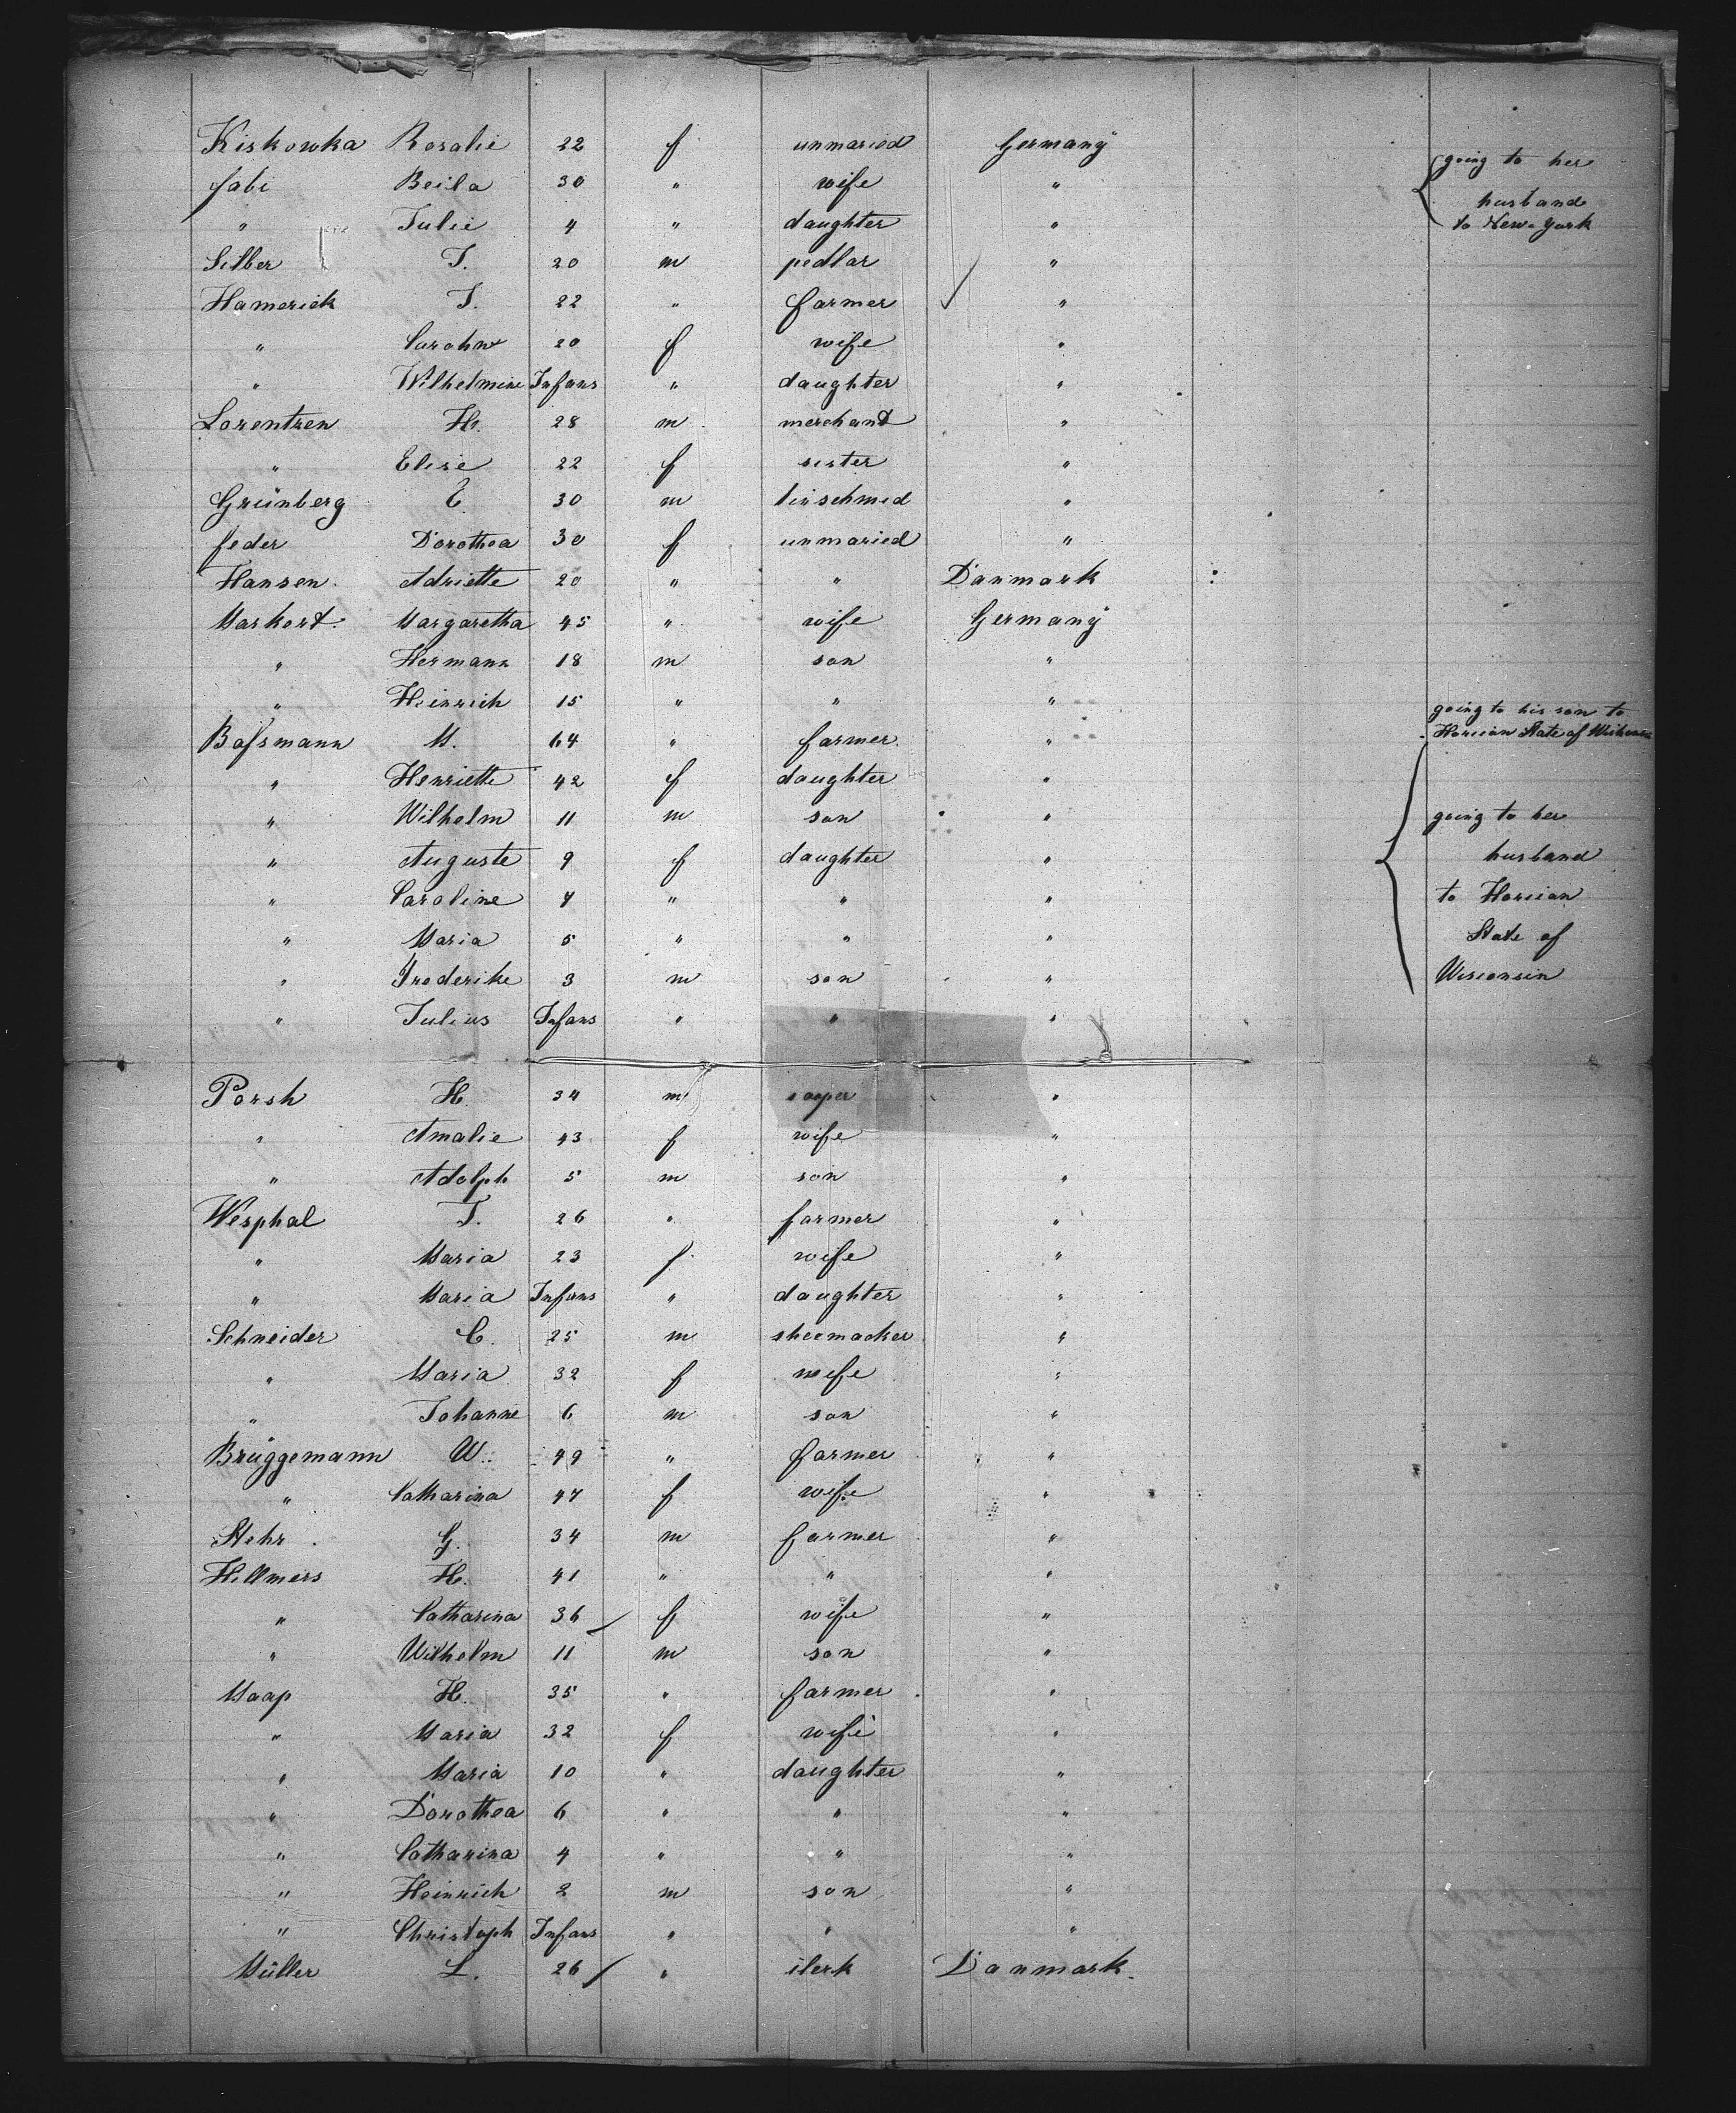 Kiskowka Rosalie 22 f unmaried Germany
fabi Beila 30 " wife " going to her
husband
" Julie 4 " daughter " to New-York
Silber J. 20 m pedlar "
Hamerick J. 22 " farmer "
" Carohne 20 f wife "
" Wilhelmine Infans " daughter "
Lorentzen H. 28 m merchant "
" Elise 22 f sister "
Grünberg E. 30 m tinschmid "
feder Dorothea 30 f unmaried "
Hansen Adriette 20 " " Danmark
Markert Margaretha 45 " wife Germany
" Hermann 18 m son "
" Heinrich 15 " " " going to his son to
Baſsmann M. 64 " farmer " Horican State of
" Henriette 42 f daughter "
" Wilhelm 11 m son " going to her
" Auguste 9 f daughter " husband
" Caroline 7 " " " to Horican
" Maria 5 " " " State of
" Frederike 3 m son " Wisconsin
" Julius Infans " " "
Porsh H. 34 m "
" Amalie 43 f wife "
" Adolph 5 m son "
Wesphal J. 26 " farmer "
" Maria 23 f wife "
" Maria Infans " daughter "
Schneider C. 25 m shoemacker "
" Maria 32 f wife "
" Johanne 6 m son "
Brüggemann W. 49 " farmer "
" Catharina 47 f wife "
Stehr G. 34 m farmer "
Hillmers H. 41 " " "
" Catharina 36 f wife "
" Wilhelm 11 m son "
Maap H. 35 " farmer "
" Maria 32 f wife "
" Maria 10 " daughter "
" Dorothea 6 " " "
" Catharina 4 " " "
" Heinrich 2 m son "
" Christoph Infans " " "
Müller L. 26 " clerk Danmark.